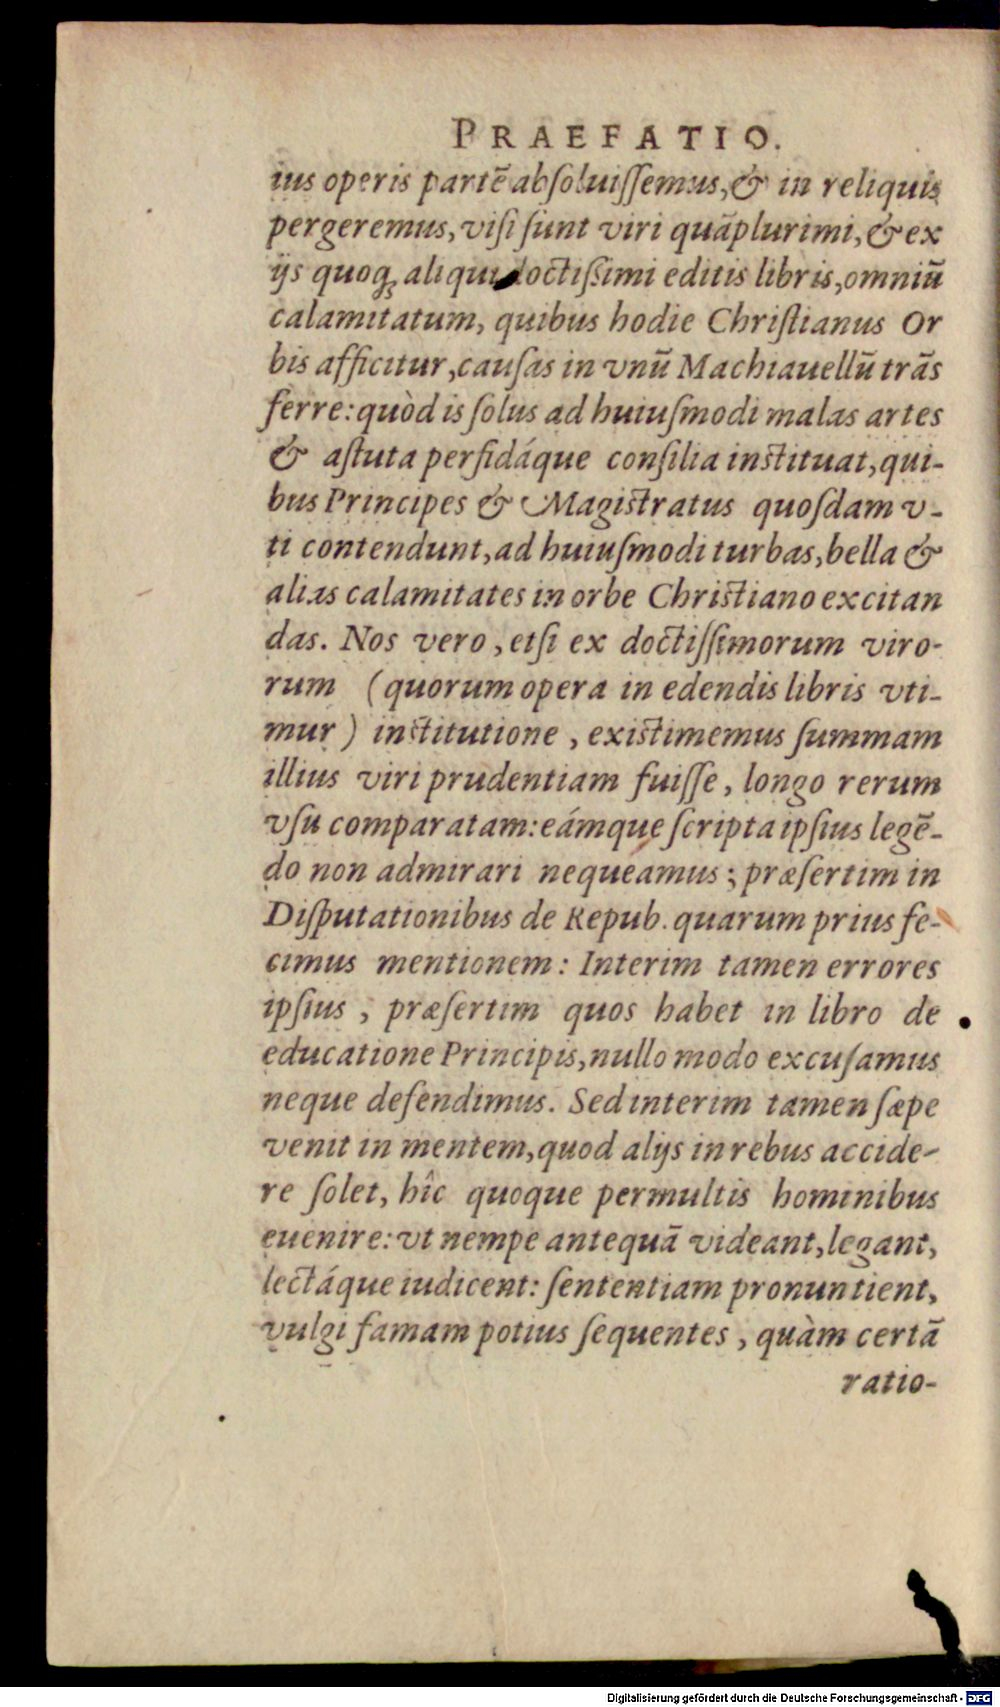 PRAEFATIO.
ius operis partē abſoluiſſemus, & in reliquis
pergeremus, viſi ſunt viri quāplurimi, & ex
ijs quoq; aliqui doctiſſimi editis libris, omniū
calamitatum, quibus hodie Chriſtianus Or
bis afficitur, cauſas in vnū Machiauellū trāſ
ferre: quòd is ſolus ad huiuſmodi malas artes
& aſtuta perfidáque conſilia inſtituat, qui-
bus Principes & Magiſtratus quoſdam v-
ti contendunt, ad huiuſmodi turbas, bella &
alias calamitates in orbe Chriſtiano excitan
das. Nos vero, etſi ex doctiſſimorum viro-
rum (quorum opera in edendis libris vti-
mur) inſtitutione, exiſtimemus ſummam
illius viri prudentiam fuiſſe, longo rerum
vſu comparatam: eámque ſcripta ipſius legē-
do non admirari nequeamus; præſertim in
Diſputationibus de Repub. quarum prius fe-
cimus mentionem: Interim tamen errores
ipſius, præſertim quos habet in libro de
educatione Principis, nullo modo excuſamus
neque defendimus. Sed interim tamen ſæpe
venit in mentem, quod alijs in rebus accide-
re ſolet, hîc quoque permultis hominibus
euenire: vt nempe antequā videant, legant,
lectáque iudicent: ſententiam pronuntient,
vulgi famam potius ſequentes, quàm certā
ratio-
Digitalisierung gefördert durch die Deutsche Forschungsgemeinschaft - DFG